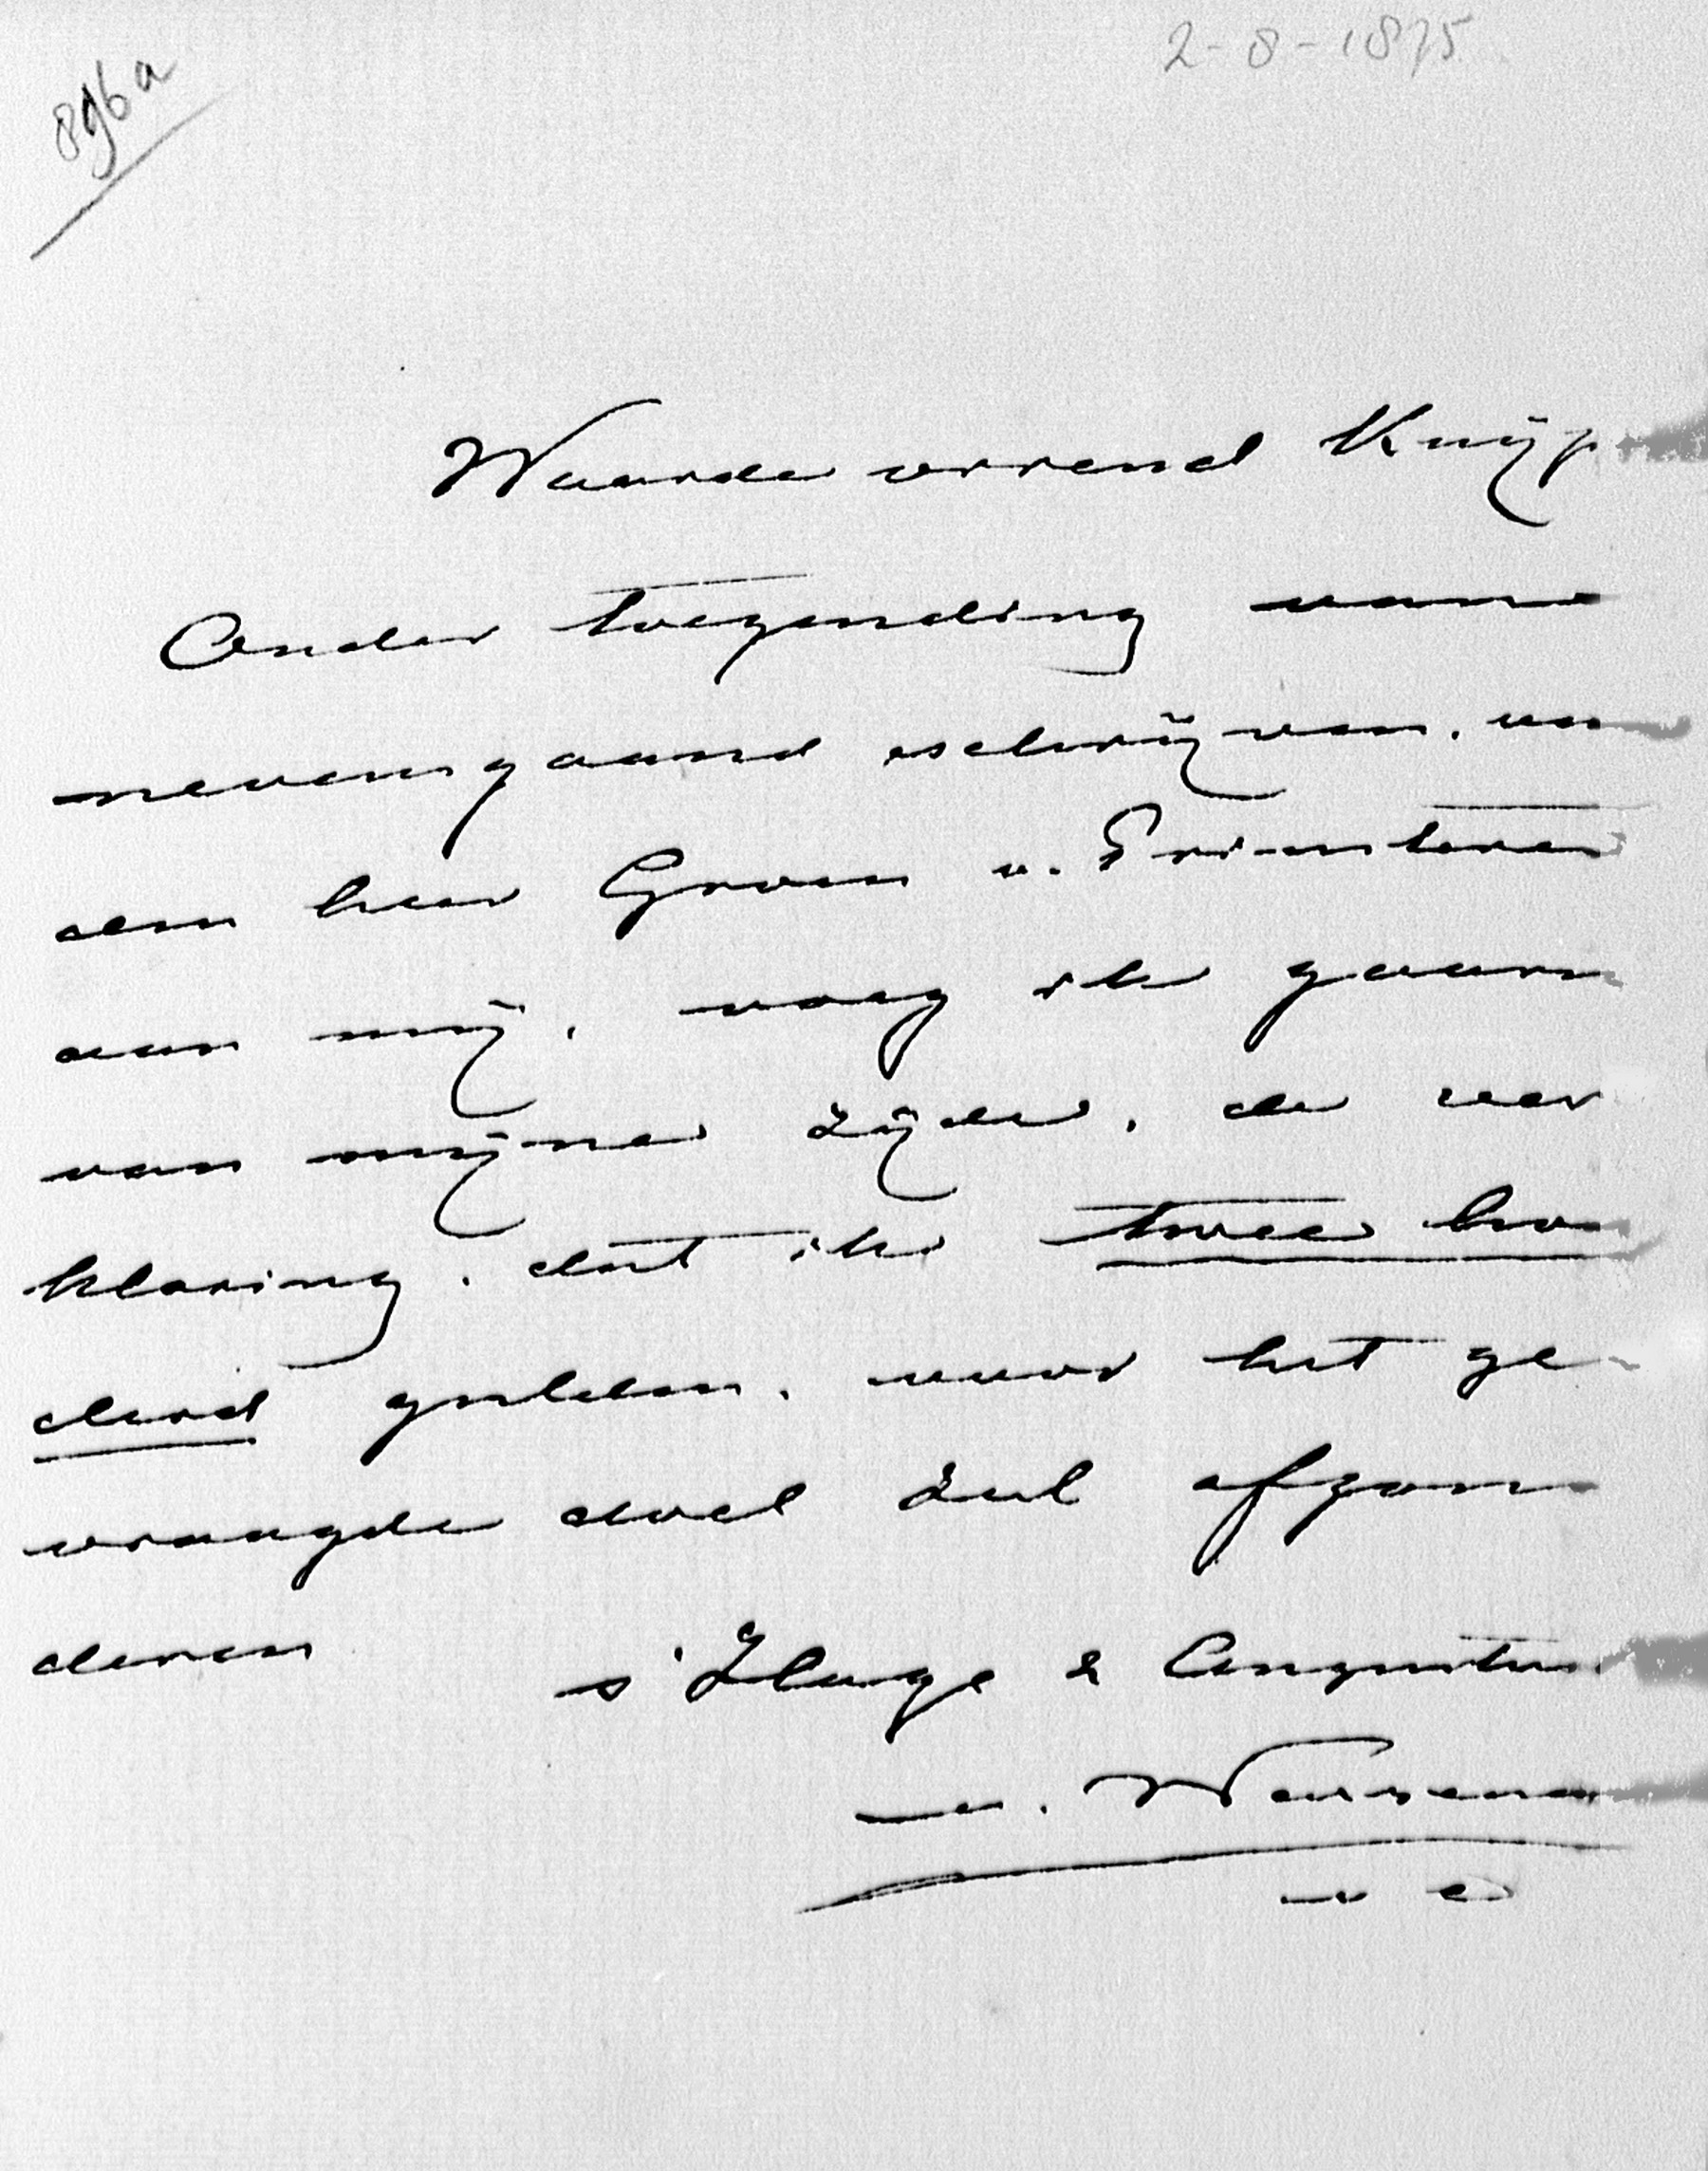 2-8-1875
896a
Waarde vriend Kuyp
Onder toezending van
nevensgaand schrijven, van
den heer Groen v. Prinsterer
aan mij, voeg ik gaarn
van mijne zijde, de ver
klaring, dat ik twee hon
derd gulden, voor het ge
vraagde doel zal afzon
deren
s'Hage 2 Augustus
v. Wassenaer
v C